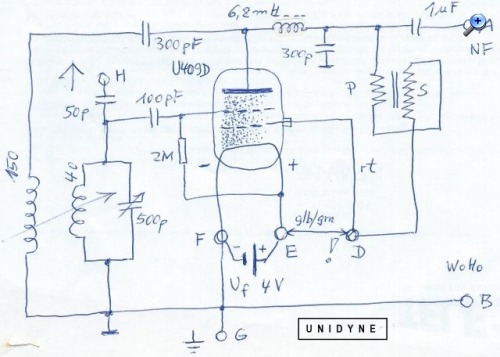 6,2mH
1µF
A
NF
300pF
300p
H
U409D
50p
100pF
P
S
150
40
2M
-
+
rt
500p
F
-
+
E
glb/grn
!
D
Uf 4V
WoHo
B
G
UNIDYNE